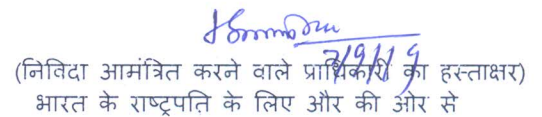 7/9/19
(निविदा आमंत्रित करने वाले प्राधिकारी का हस्ताक्षर)
भारत के राष्ट्रपति के लिए और की ओर से